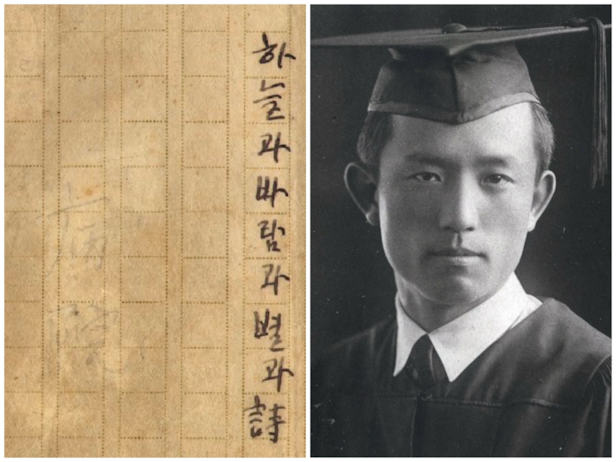 하늘과 바람과 별과 詩
病院